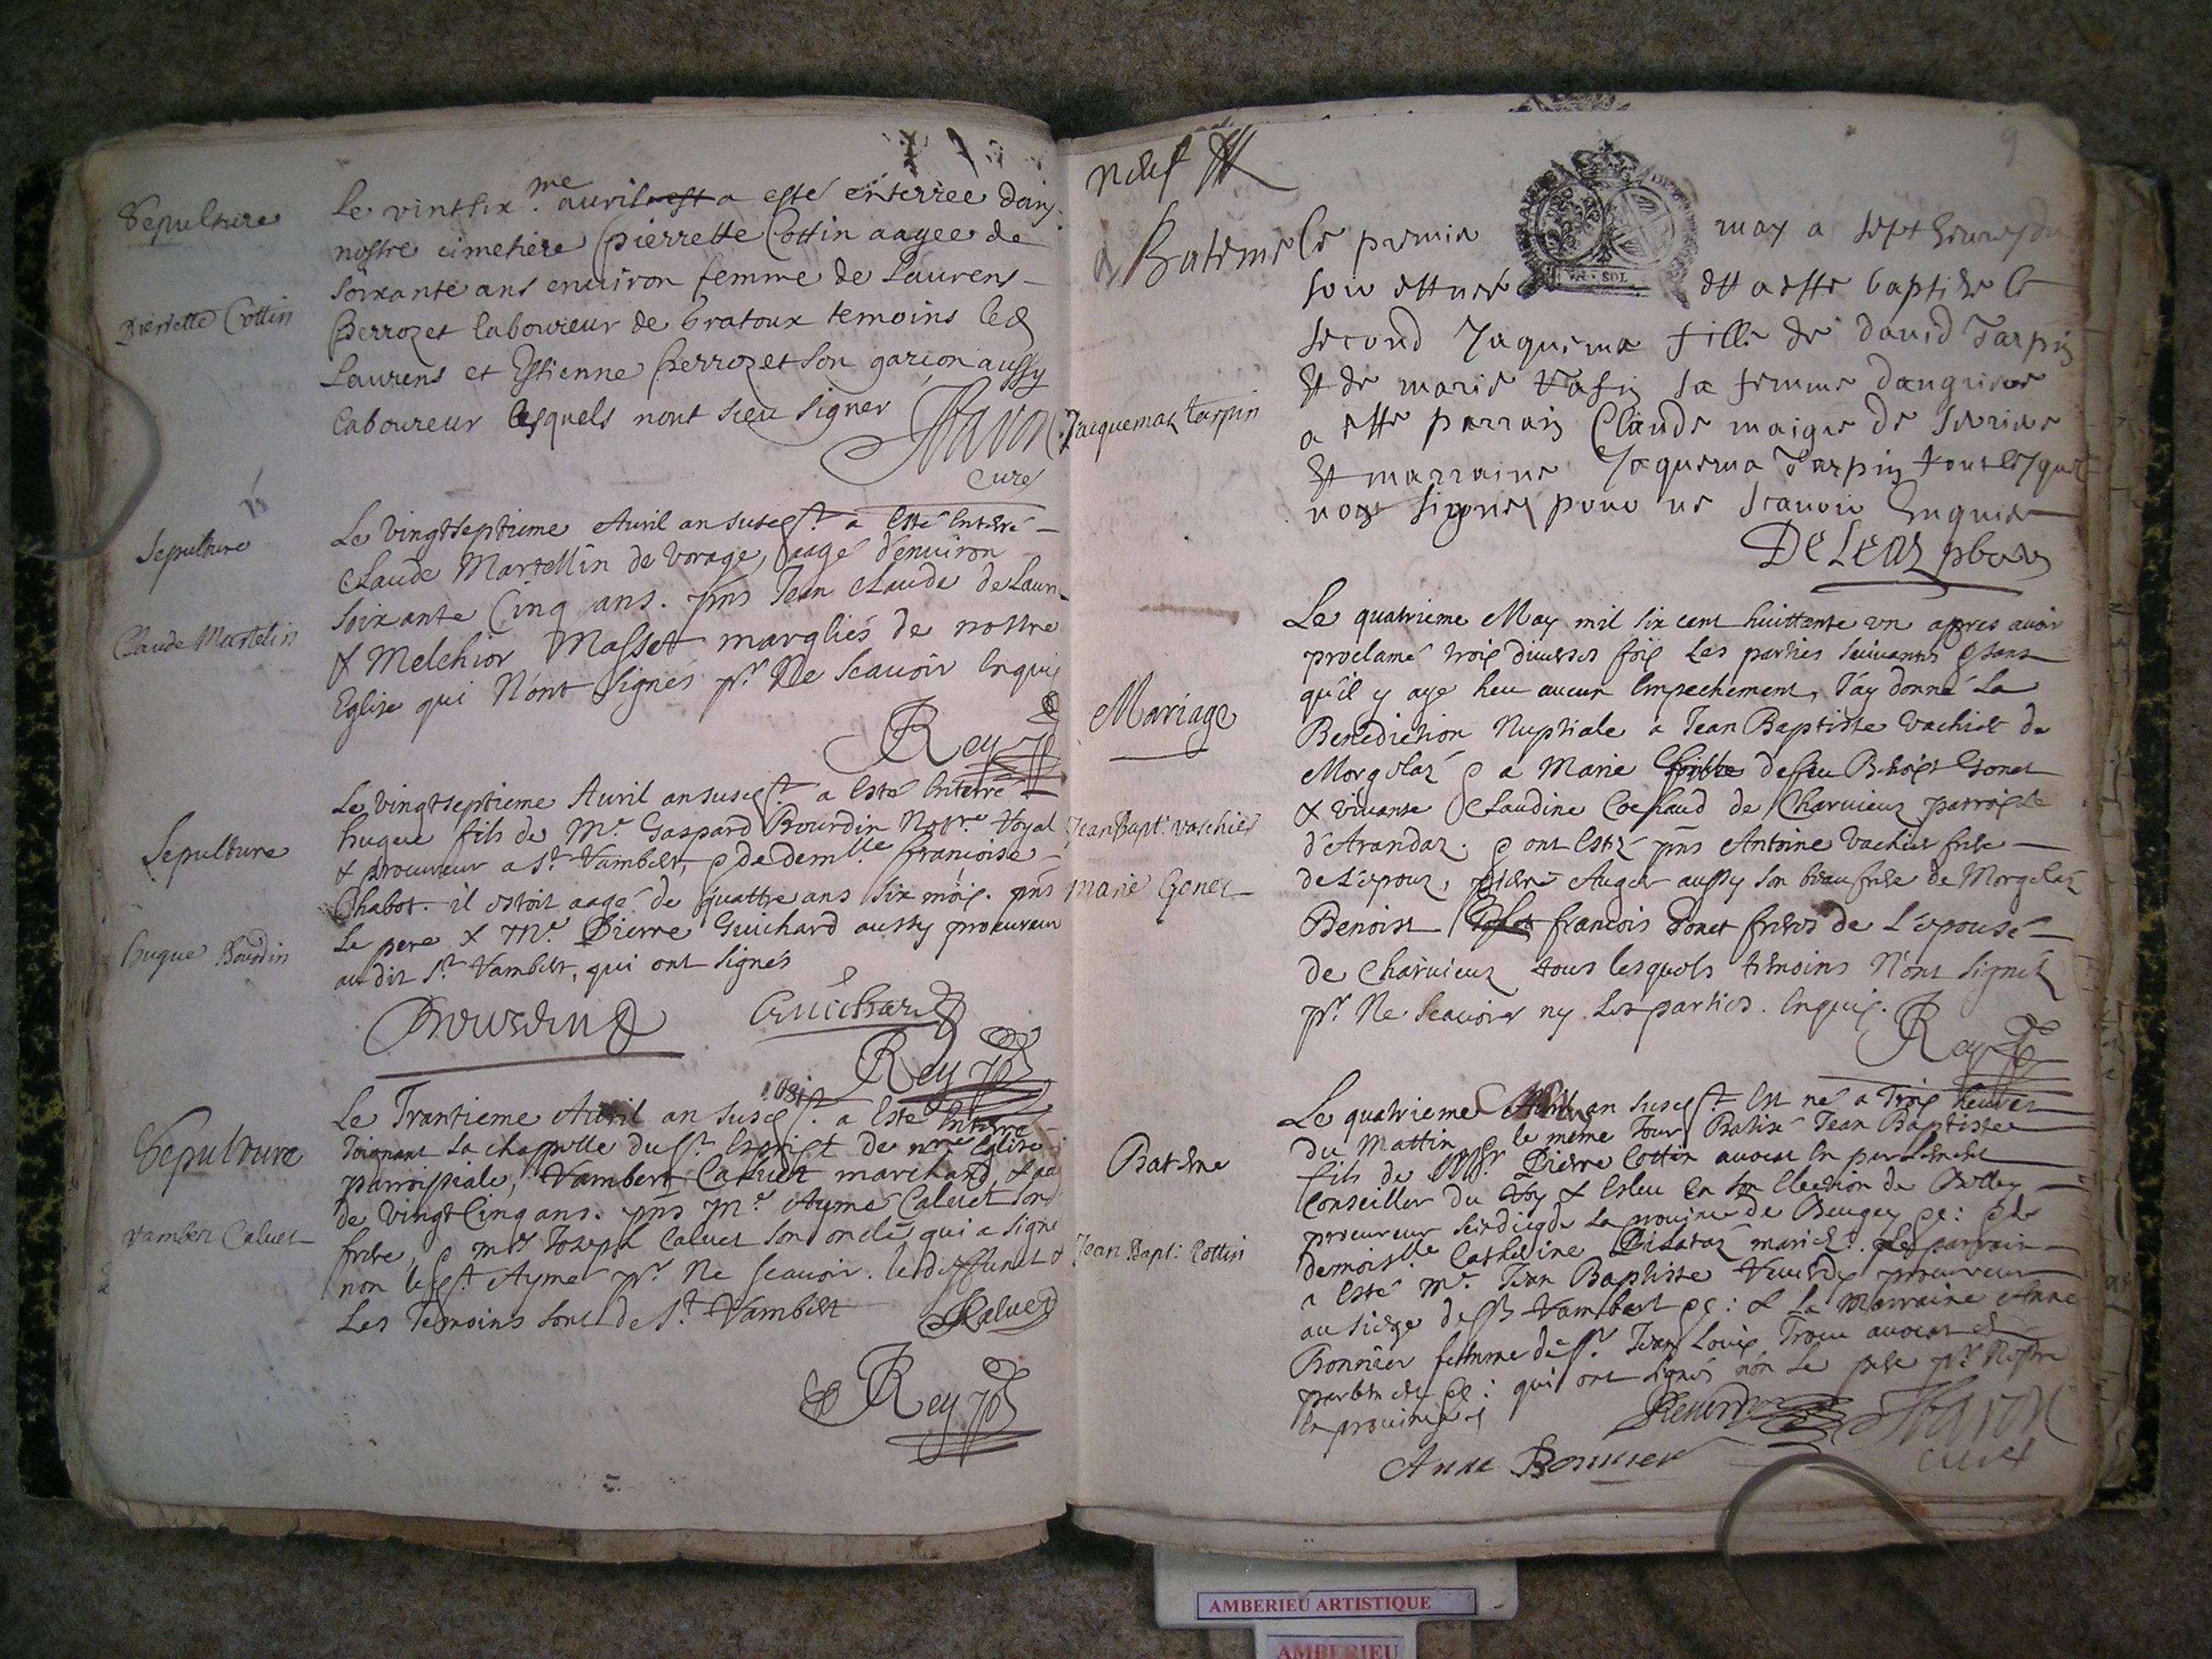 Sepulture
Pierrette Cottin
Le vintsix.me auril est a esté enterrée dans
nostre cimetiere pierrette Cottin aagee de
soixante ans enuiron femme de Laurens
perrozet laboureur de bratoux temoins led
Laurens et Estienne perrozet son garcon aussy
laboureur lesquels nont sceu signer
curé
Sepulture
Claude Martelin
Le vingtseptieme Auril an susd a Esté Enterré
Claude Martellin de vorage, aagé d'enuiron
soixante Cinq ans. pns Jean Claude de Laun
& Melchior Masset margliés de nostre
Eglise qui N'ont signés pr. Ne scauoir Enquis
Rey
Sepulture
hugue Bourdin
Le vingtseptieme Auril an susd a Esté Enterré
hugue fils de Me. Gaspard Bourdin Not.re Royal
& procureur a St. Rambert, & de demlle françoise
Chabot. il estoit aagé de quattre ans six mois. pns
Le pere & Me. Pierre Guichard aussy procureur
audit St. Rambert, qui ont signés
Bourdin
Guichard
Rey
Sepulture
Rambert Caluet
1681
Le Trantieme Auril an susd. a Esté Enterré
Joignant La chapelle du St. Esprit de nre Eglise
parroissiale, Rambert Caluet marchand, aagé
de vingt Cinq ans. pns Me. Aymé Caluet son
frere, & Mre Joseph Caluet son oncle qui a signé
non led. Aymé pr. Ne scauoir. le deffunct &
Les Temoins sont de St. Rambert
Caluet
Rey
9
neuf
Bateme
Jacquemaz tarpin
le premier may a sept heures du
soir est née et a esté baptisée le
second Jaquema fille de dauid Tarpin
Et de marie sa femme
a esté parrain Claude maigre de
Et marraine Jaquema Tarpin
nont signé pour ne scauoir Enquis
De Leaz pbre
Mariage
Jean Bapt. vachier
Marie Gonet
Le quatrieme May mil six cent huittante vn apres auoir
proclamé trois diuerses fois Les parties suiuantes & sans
qu'il y aye heu aucun Empechement, J'ay donné La
Benediction Nuptiale a Jean Baptiste vachier de
Morgelaz & a Marie de feu Benoist Gonet
& viuante Claudine Cochaud de Charuieux parroisse
d'Arandaz. & ont Esté pns Antoine vachier frere
de L'epoux, Auger aussy son beaufrere de Morgelaz
Benoist francois Gonet freres de L'epouse
de Charuieux tous lesquels temoins N'ont signéz
pr. Ne Scauoir ny Les parties. Enquis.
Rey
Bateme
Jean Bapt. Cottin
Le quatrieme an susd. Est né a Trois heures
du Mattin & le même Jour Batisé Jean Baptiste
fils de Pierre Cottin auocat En parlement
Conseiller du Roy & Esleu En son Election de Belley
procureur scindicq de La prouince de Beugey
demoislle Catherine mariés. Le parrain
a Esté Me. Jean Baptiste Reuerdy procureur
au siege de St Rambert & La Marraine Anne
Bonnier femme de Sr. Jean Louis Trocu auocat en
parlement qui ont signés non Le pere
la prouince
Reuerdy
curé
Anne Bonnier
AMBERIEU ARTISTIQUE
AMBERIEU